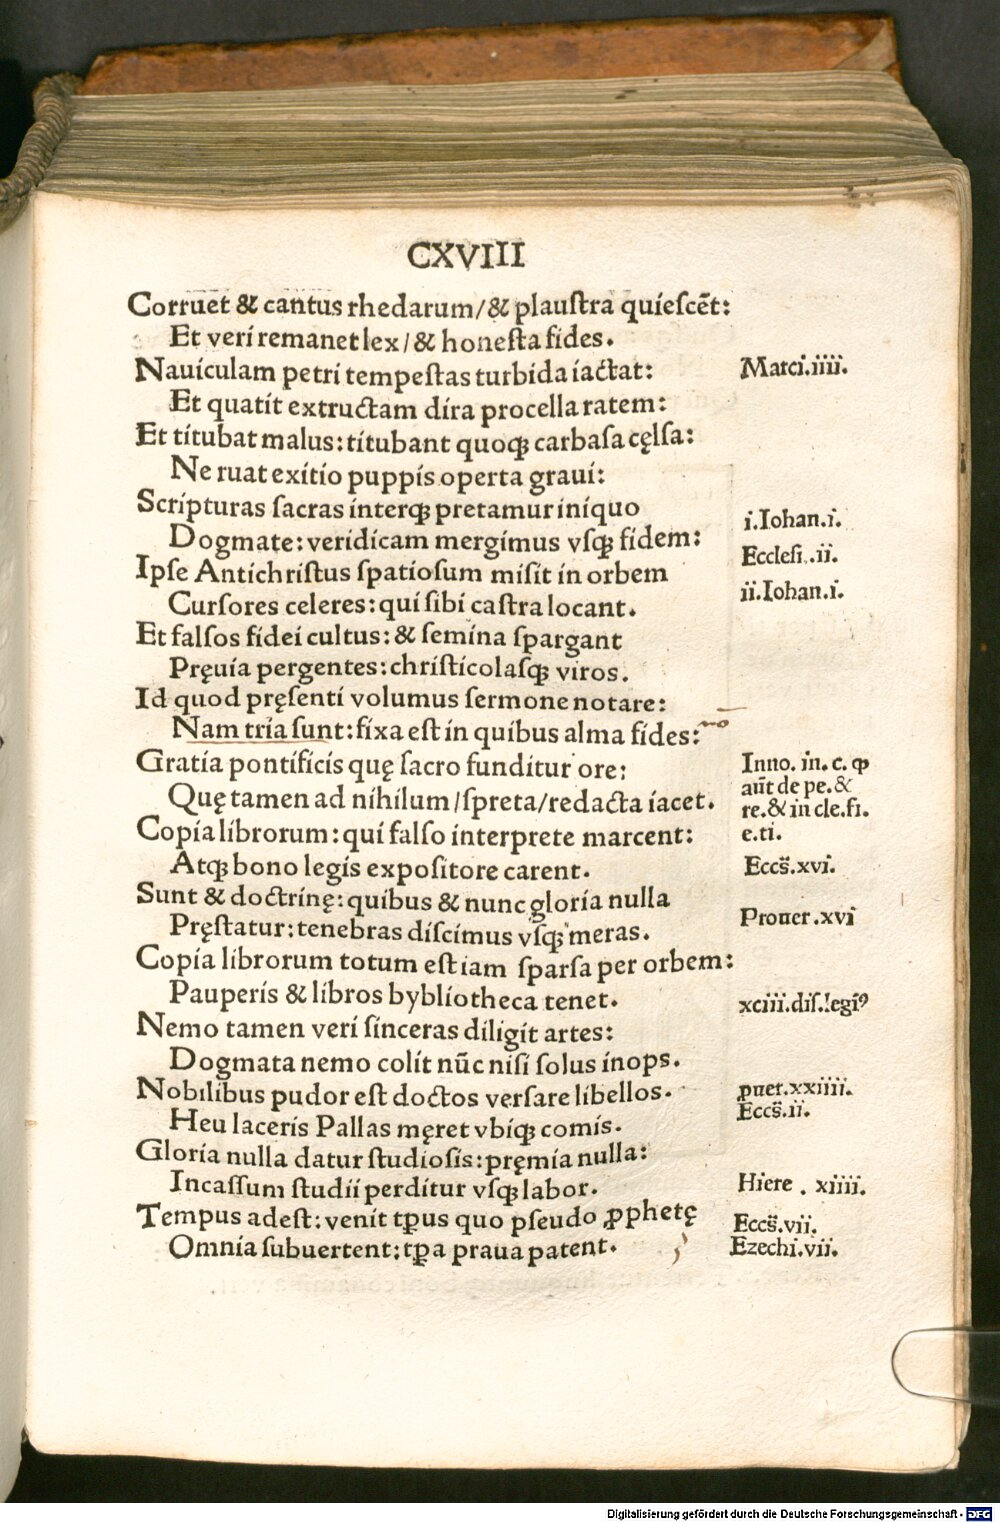 CXVIII
Corruet & cantus rhedarum/& plauſtra quieſcēt:
Et veri remanet lex/& honeſta fides.
Nauiculam petri tempeſtas turbida iactat:
Marci.iiii.
Et quatit extructam dira procella ratem:
Et titubat malus:titubant quoqꝫ carbaſa cęlſa:
Ne ruat exitio puppis operta graui:
Scripturas ſacras interqꝫ pretamur iniquo
i.Iohan.i.
Dogmate:veridicam mergimus vſqꝫ fidem:
Eccleſi.ii.
Ipſe Antichriſtus ſpatioſum miſit in orbem
ii.Iohan.i.
Curſores celeres:qui ſibi caſtra locant.
Et falſos fidei cultus:& ſemina ſpargant
Pręuia pergentes:chriſticolaſqꝫ viros.
Id quod pręſenti volumus ſermone notare:
Nam tria ſunt:fixa eſt in quibus alma fides:
Gratia pontificis quę ſacro funditur ore:
Inno. in. c. ꝙ
Quę tamen ad nihilum/ſpreta/redacta iacet.
aūt de pe.&
re.& in cle.fi.
Copia librorum:qui falſo interprete marcent:
e.ti.
Atqꝫ bono legis expoſitore carent.
Eccs̄.xvi.
Sunt & doctrinę:quibus & nunc gloria nulla
Pręſtatur:tenebras diſcimus vſqꝫ meras.
Prouer.xvi
Copia librorum totum eſt iam ſparſa per orbem:
Pauperis & libros bybliotheca tenet.
xciii.diſ.legiꝰ
Nemo tamen veri ſinceras diligit artes:
Dogmata nemo colit nūc niſi ſolus inops.
Nobilibus pudor eſt doctos verſare libellos.
ꝓuer.xxiiii.
Eccs̄.ii.
Heu laceris Pallas męret vbiqꝫ comis.
Gloria nulla datur ſtudioſis:pręmia nulla:
Incaſſum ſtudii perditur vſqꝫ labor.
Hiere . xiiii.
Tempus adeſt:venit tꝑus quo pſeudo ꝓphetę
Eccs̄.vii.
Omnia ſubuertent:tꝑa praua patent.
Ezechi.vii.
Digitalisierung gefördert durch die Deutsche Forschungsgemeinschaft - DFG